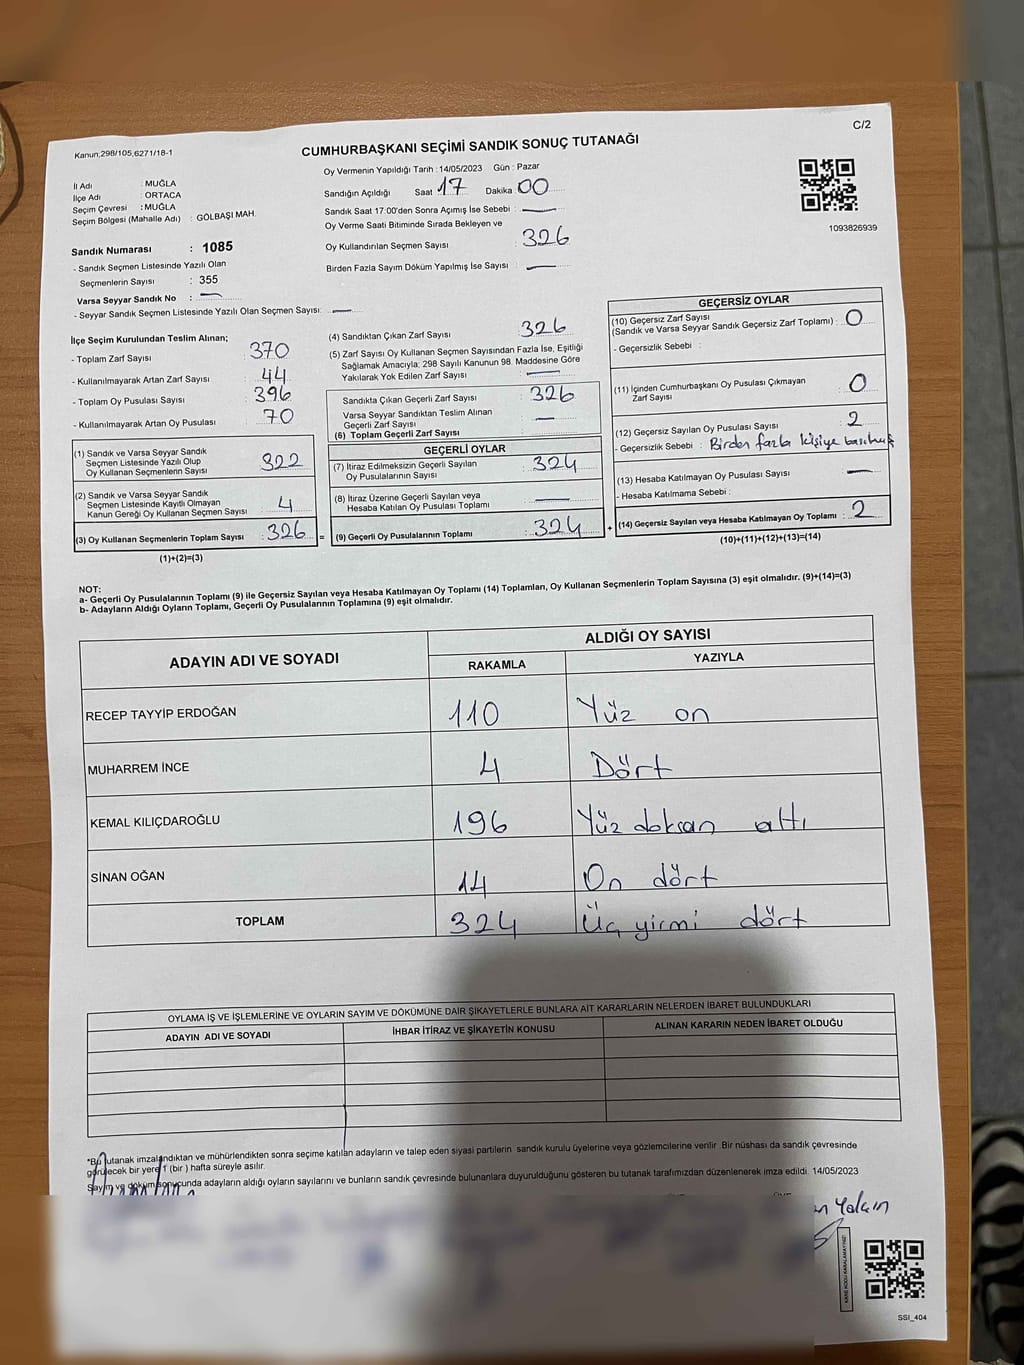 C/2
Kanun;298/105,6271/18-1
CUMHURBAŞKANI SEÇİMİ SANDIK SONUÇ TUTANAĞI
İl Adı : MUĞLA
İlçe Adı : ORTACA
Seçim Çevresi : MUĞLA
Seçim Bölgesi (Mahalle Adı) : GÖLBAŞI MAH.
Oy Vermenin Yapıldığı Tarih : 14/05/2023 Gün : Pazar
Sandığın Açıldığı Saat 17 Dakika 00
Sandık Saat 17:00'den Sonra Açımış İse Sebebi : —
Oy Verme Saati Bitiminde Sırada Bekleyen ve
Oy Kullandırılan Seçmen Sayısı : 326
Birden Fazla Sayım Döküm Yapılmış İse Sayısı : —
1093826939
Sandık Numarası : 1085
- Sandık Seçmen Listesinde Yazılı Olan
Seçmenlerin Sayısı : 355
Varsa Seyyar Sandık No : —
- Seyyar Sandık Seçmen Listesinde Yazılı Olan Seçmen Sayısı: —
İlçe Seçim Kurulundan Teslim Alınan;
- Toplam Zarf Sayısı : 370
- Kullanılmayarak Artan Zarf Sayısı : 44
- Toplam Oy Pusulası Sayısı : 396
- Kullanılmayarak Artan Oy Pusulası : 70
(1) Sandık ve Varsa Seyyar Sandık
Seçmen Listesinde Yazılı Olup
Oy Kullanan Seçmenlerin Sayısı : 322
(2) Sandık ve Varsa Seyyar Sandık
Seçmen Listesinde Kayıtlı Olmayan
Kanun Gereği Oy Kullanan Seçmen Sayısı : 4
(3) Oy Kullanan Seçmenlerin Toplam Sayısı : 326 =
(1)+(2)=(3)
(4) Sandıktan Çıkan Zarf Sayısı : 326
(5) Zarf Sayısı Oy Kullanan Seçmen Sayısından Fazla İse, Eşitliği
Sağlamak Amacıyla; 298 Sayılı Kanunun 98. Maddesine Göre
Yakılarak Yok Edilen Zarf Sayısı : —
Sandıkta Çıkan Geçerli Zarf Sayısı : 326
Varsa Seyyar Sandıktan Teslim Alınan
Geçerli Zarf Sayısı : —
(6) Toplam Geçerli Zarf Sayısı :
GEÇERLİ OYLAR
(7) İtiraz Edilmeksizin Geçerli Sayılan
Oy Pusulalarının Sayısı : 324
(8) İtiraz Üzerine Geçerli Sayılan veya
Hesaba Katılan Oy Pusulası Toplamı : —
(9) Geçerli Oy Pusulalarının Toplamı : 324 +
GEÇERSİZ OYLAR
(10) Geçersiz Zarf Sayısı
(Sandık ve Varsa Seyyar Sandık Geçersiz Zarf Toplamı) : 0
- Geçersizlik Sebebi :
(11) İçinden Cumhurbaşkanı Oy Pusulası Çıkmayan
Zarf Sayısı : 0
(12) Geçersiz Sayılan Oy Pusulası Sayısı : 2
- Geçersizlik Sebebi : Birden fazla kişiye basılmış
(13) Hesaba Katılmayan Oy Pusulası Sayısı : —
- Hesaba Katılmama Sebebi :
(14) Geçersiz Sayılan veya Hesaba Katılmayan Oy Toplamı : 2
(10)+(11)+(12)+(13)=(14)
NOT:
a- Geçerli Oy Pusulalarının Toplamı (9) ile Geçersiz Sayılan veya Hesaba Katılmayan Oy Toplamı (14) Toplamları, Oy Kullanan Seçmenlerin Toplam Sayısına (3) eşit olmalıdır. (9)+(14)=(3)
b- Adayların Aldığı Oyların Toplamı, Geçerli Oy Pusulalarının Toplamına (9) eşit olmalıdır.
ADAYIN ADI VE SOYADI
ALDIĞI OY SAYISI
RAKAMLA YAZIYLA
RECEP TAYYİP ERDOĞAN 110 Yüz on
MUHARREM İNCE 4 Dört
KEMAL KILIÇDAROĞLU 196 Yüz doksan altı
SİNAN OĞAN 14 On dört
TOPLAM 324 Üç yirmi dört
OYLAMA İŞ VE İŞLEMLERİNE VE OYLARIN SAYIM VE DÖKÜMÜNE DAİR ŞİKAYETLERLE BUNLARA AİT KARARLARIN NELERDEN İBARET BULUNDUKLARI
ADAYIN ADI VE SOYADI İHBAR İTİRAZ VE ŞİKAYETİN KONUSU ALINAN KARARIN NEDEN İBARET OLDUĞU
*Bu tutanak imzalandıktan ve mühürlendikten sonra seçime katılan adayların ve talep eden siyasi partilerin sandık kurulu üyelerine veya gözlemcilerine verilir. Bir nüshası da sandık çevresinde
görülecek bir yere 1 (bir ) hafta süreyle asılır.
Sayım ve döküm sonucunda adayların aldığı oyların sayılarını ve bunların sandık çevresinde bulunanlara duyurulduğunu gösteren bu tutanak tarafımızdan düzenlenerek imza edildi. 14/05/2023
Yalçın
KARE KODU KARALAMAYINIZ!
SSI_404